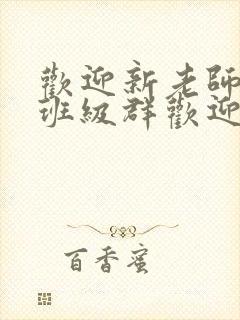 歡迎新老師
班級群歡迎
百香蜜